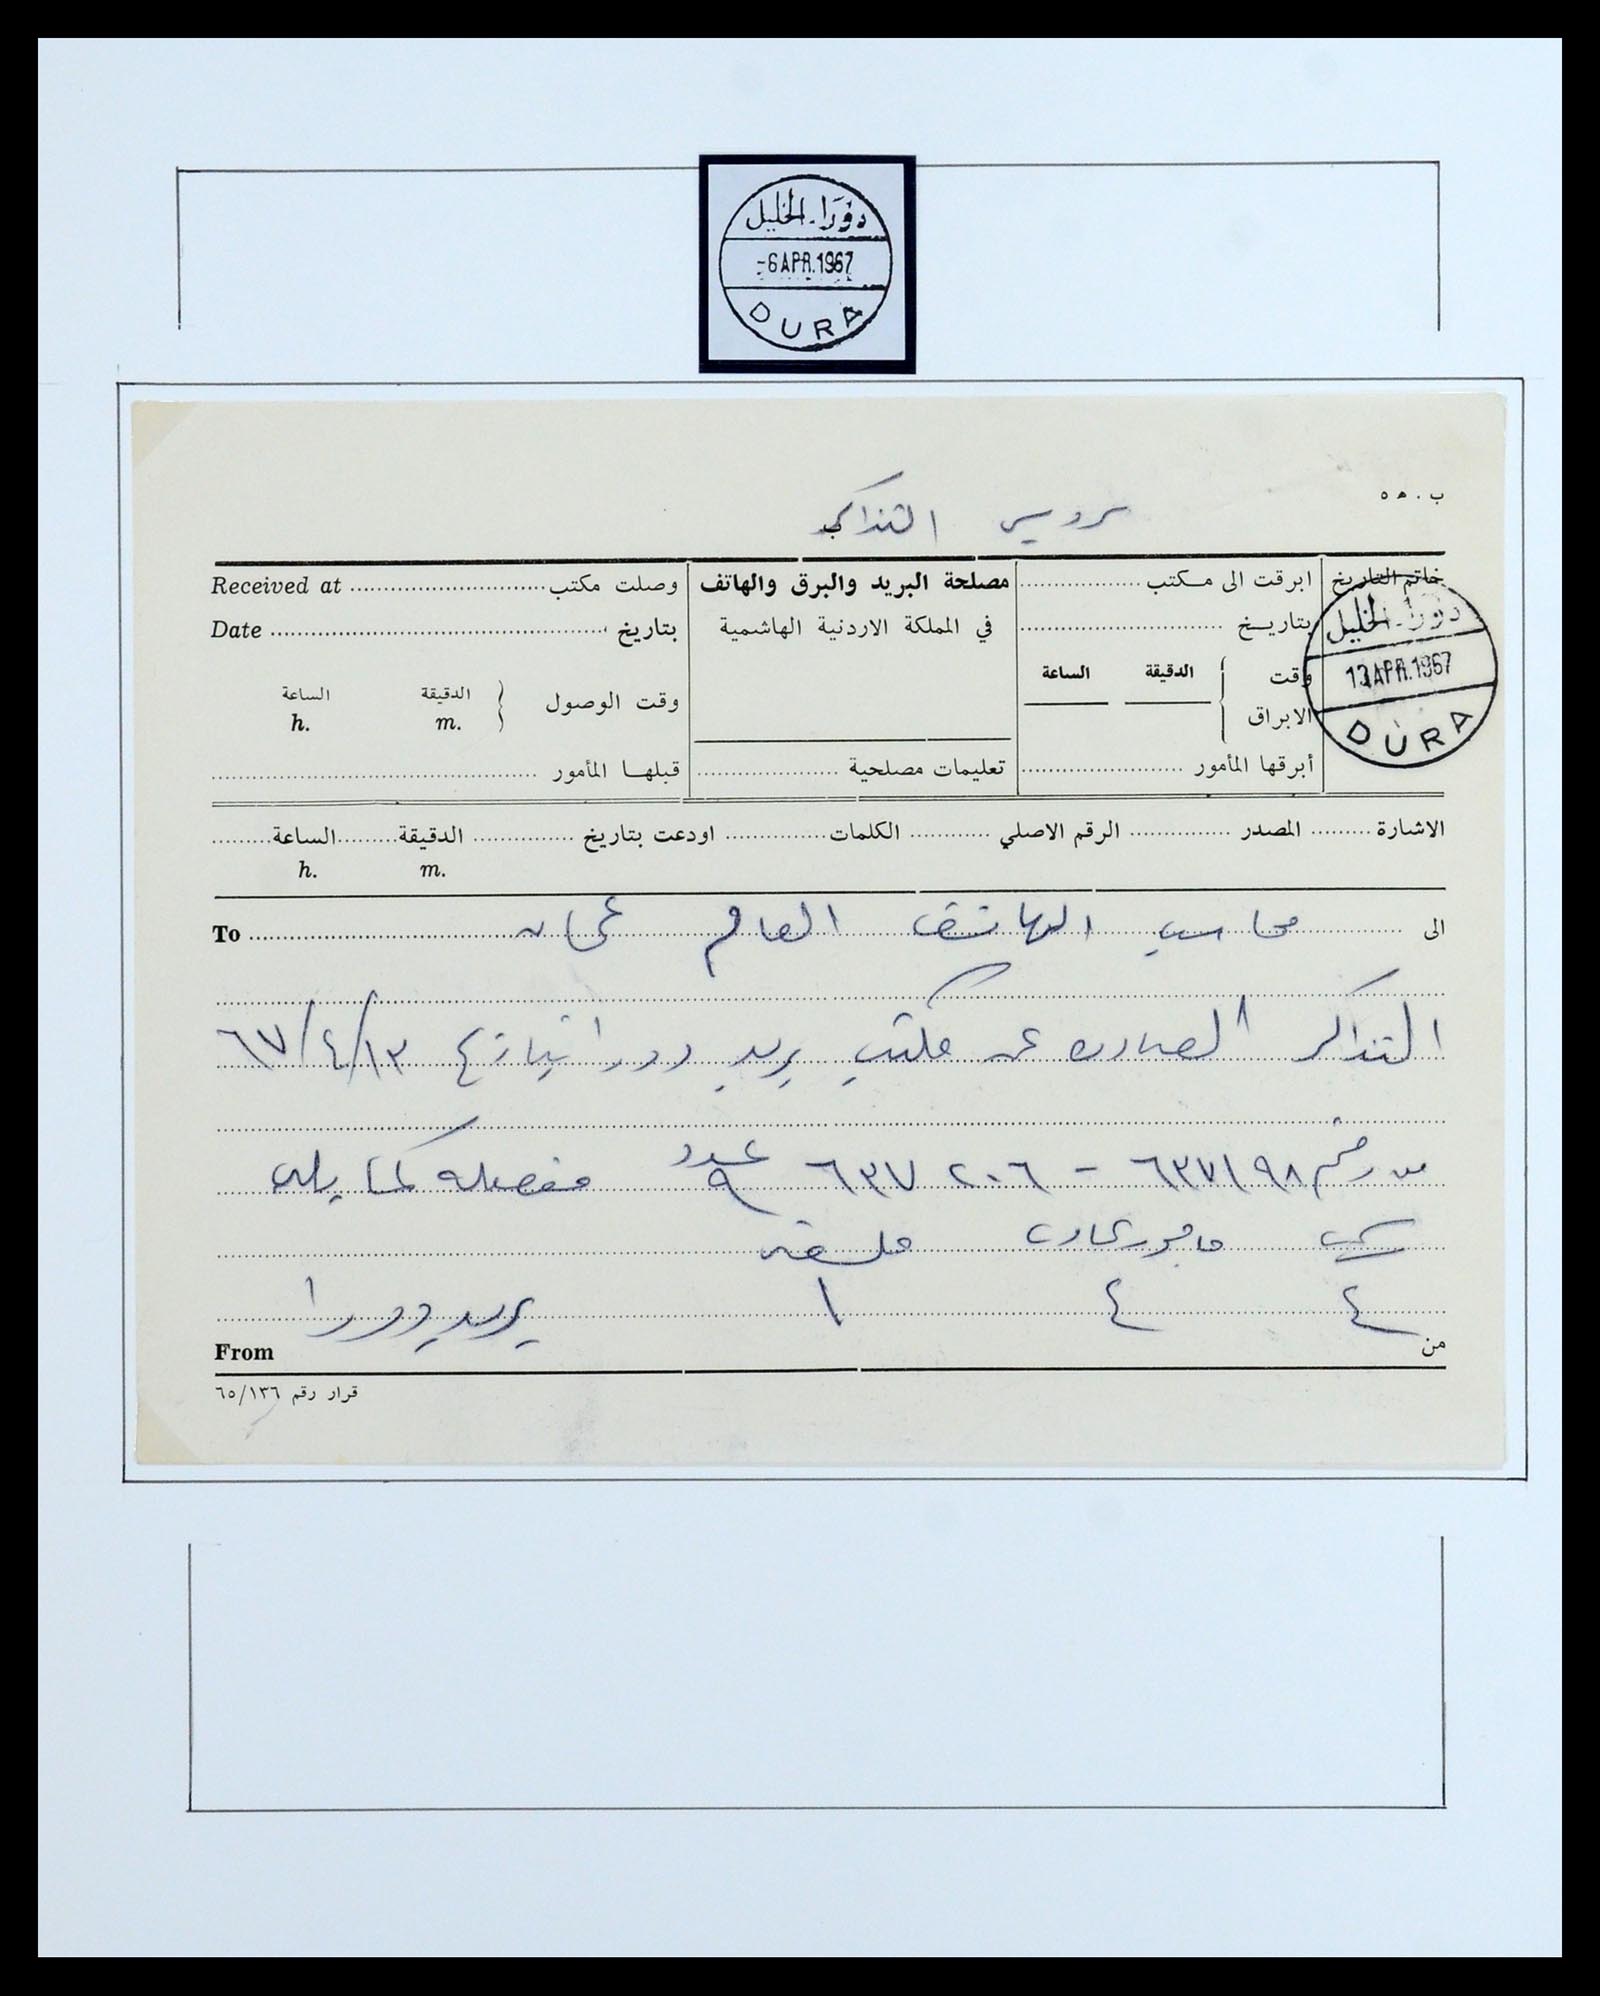 دورا - الخليل
-6 APR. 1967
DURA
ب . ه ٥
التذاكر
خاتم التاريخ
ابرقت الى مكتب
بتاريخ
وقت الابراق
الدقيقة الساعة
أبرقها المأمور
مصلحة البريد والبرق والهاتف
في المملكة الاردنية الهاشمية
تعليمات مصلحية
وصلت مكتب Received at
بتاريخ Date
وقت الوصول
الدقيقة الساعة
m. h.
قبلها المأمور
دورا - الخليل
13 APR. 1967
DURA
الاشارة المصدر الرقم الاصلي الكلمات اودعت بتاريخ الدقيقة الساعة
m. h.
الى محاسب الهاتف العام عمان To
التذاكر الصادره عن مكتب بريد دورا بتاريخ ٦٧/٤/١٣
من رقم ٦٣٧١٩٨ - ٦٣٧٢٠٦ عدد ٩ مفصله كما يلي
ملغيه
٤ ٤ ١ بريد دورا
من From
قرار رقم ٦٥/١٣٦